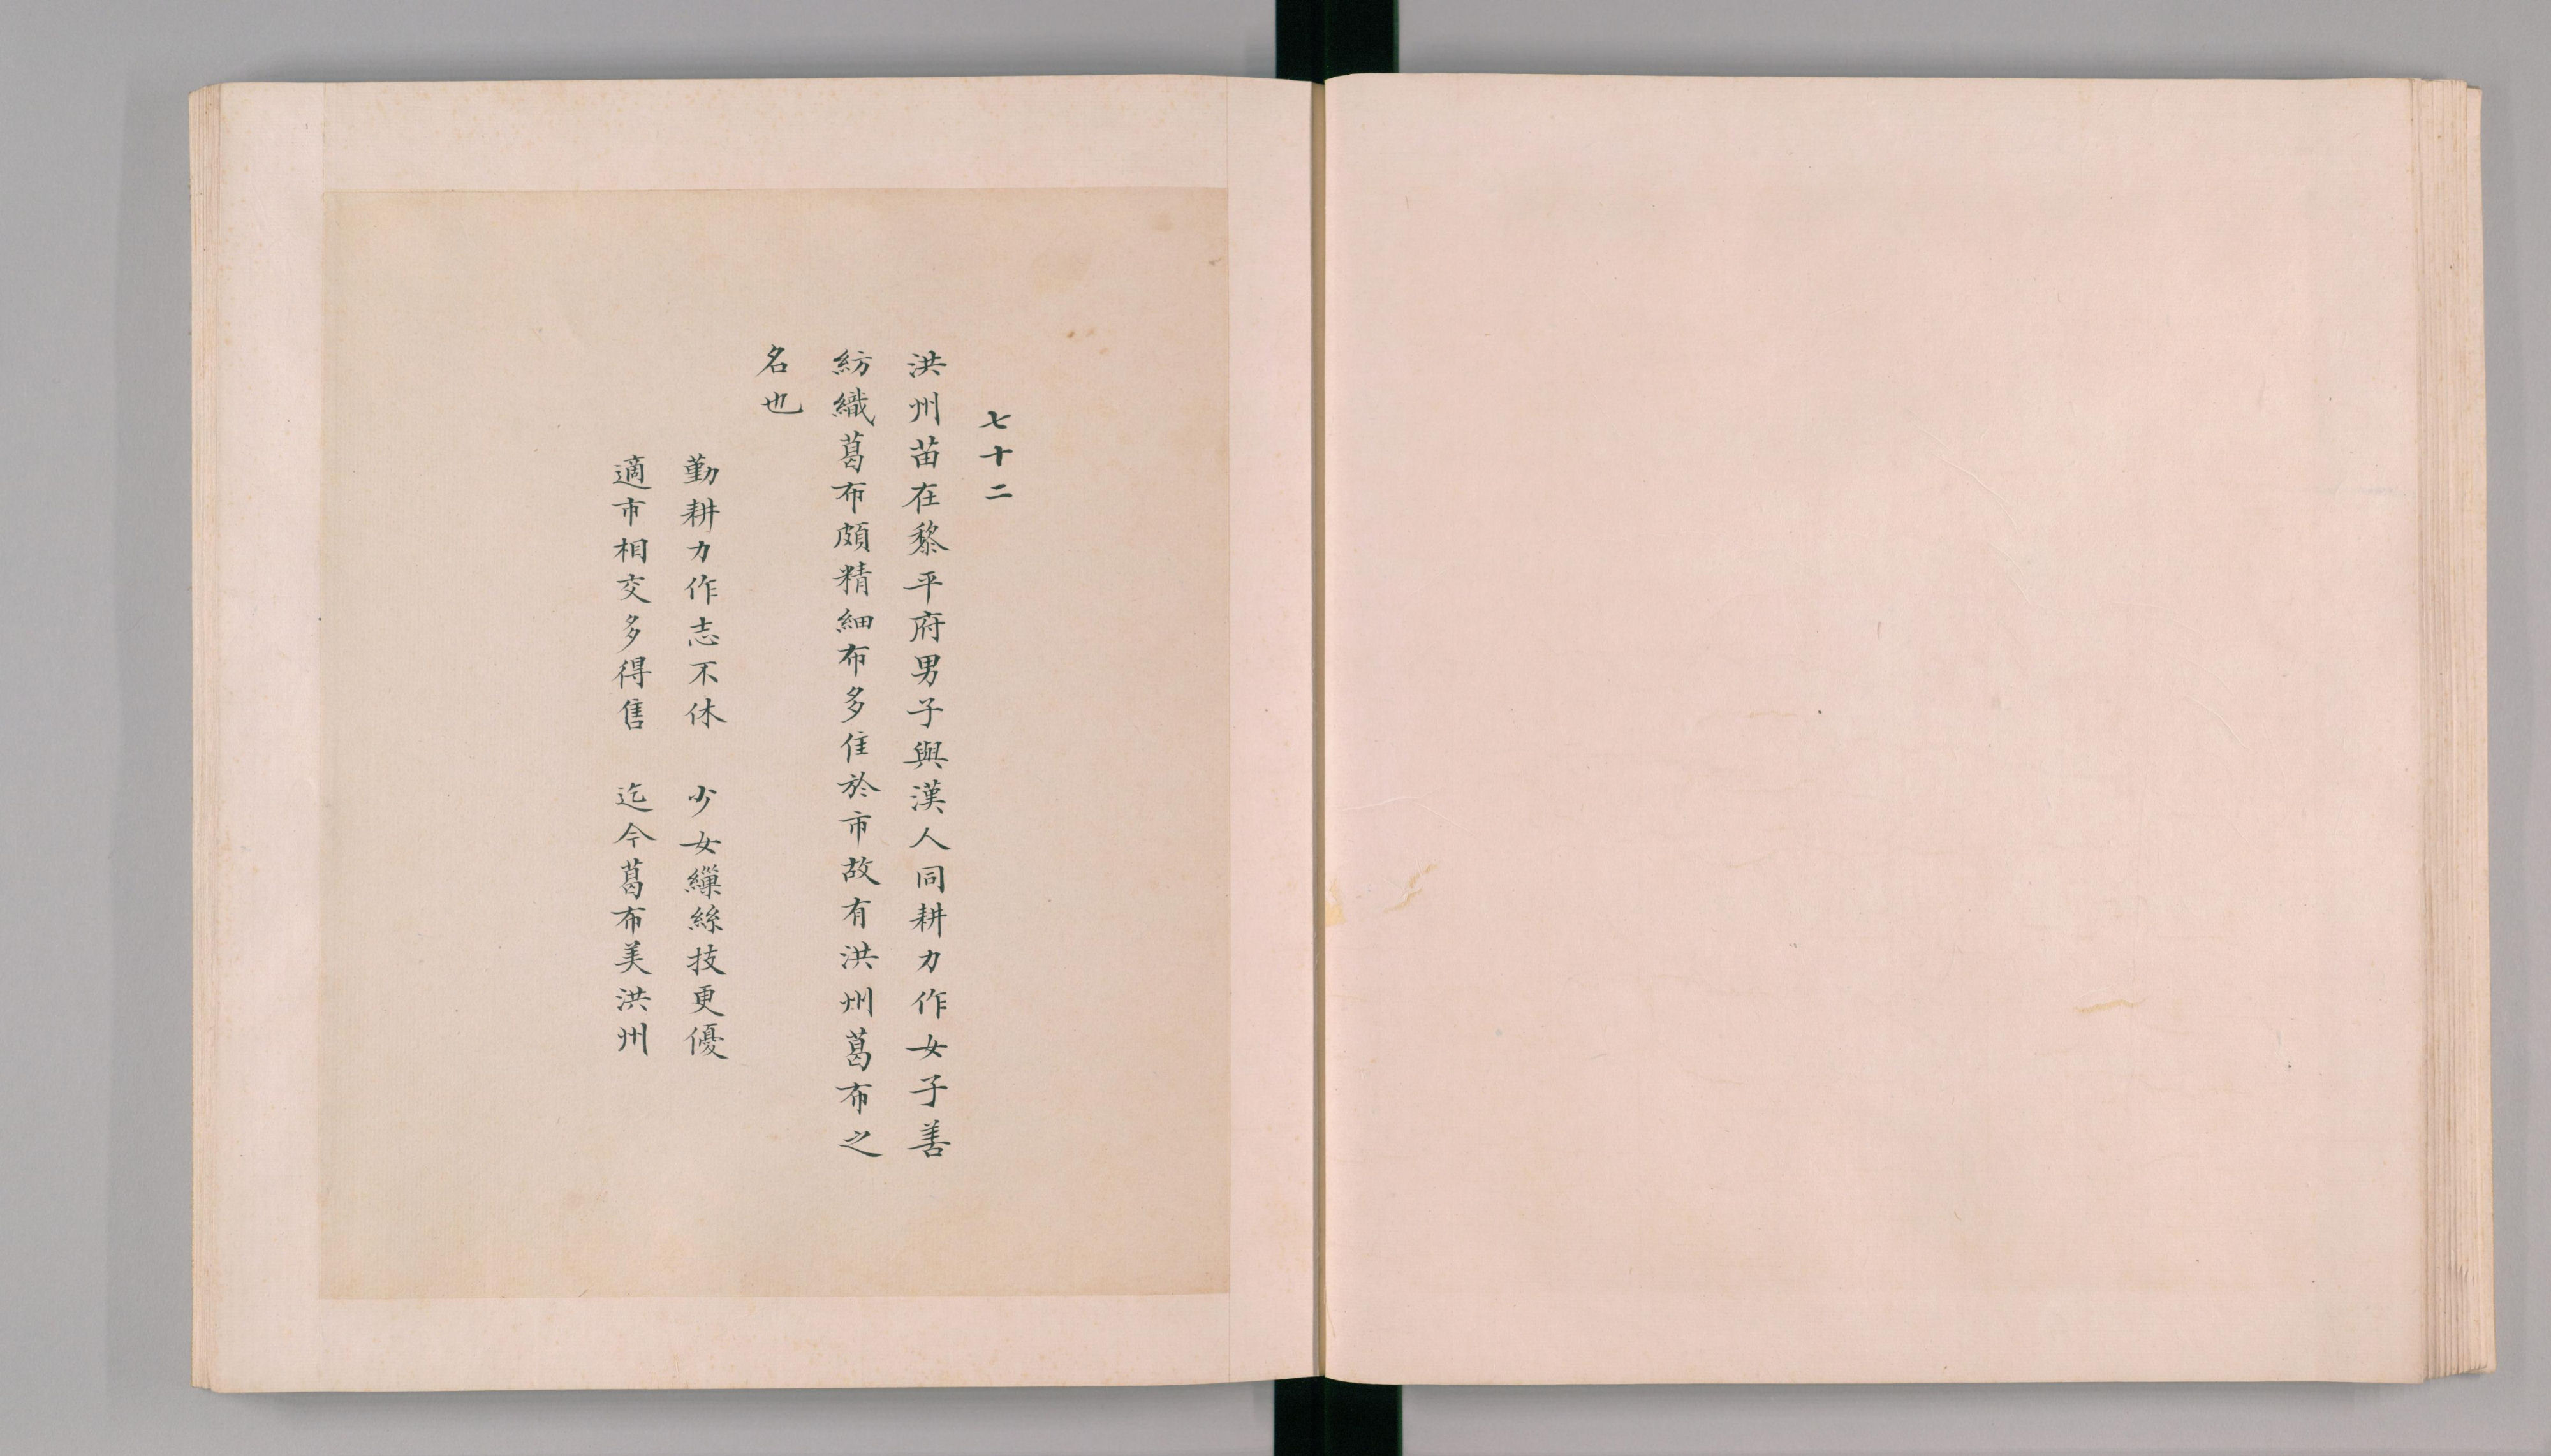 七十二
洪州苗在黎平府男子與漢人同耕力作女子善
紡織葛布頗精細布多隹於市故有洪州葛布之
名也
勤耕力作志不休　少女繅絲技更優
適市相交多得售　迄今葛布美洪州